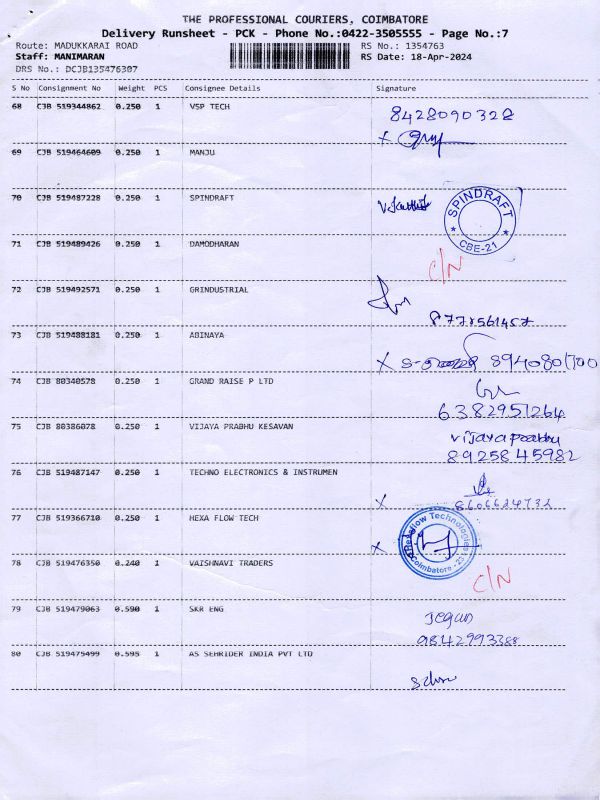 THE PROFESSIONAL COURIERS, COIMBATORE
Delivery Runsheet - PCK - Phone No.:0422-3505555 - Page No.:7
Route: MADUKKARAI ROAD RS No.: 1354763
Staff: MANIMARAN RS Date: 18-Apr-2024
DRS No.: DCJB135476307
S No Consignment No Weight PCS Consignee Details Signature
68 CJB 519344862 0.250 1 VSP TECH
8428090328
69 CJB 519464609 0.250 1 MANJU
70 CJB 519487228 0.250 1 SPINDRAFT
SPINDRAFT
CBE-21
71 CJB 519489426 0.250 1 DAMODHARAN
C/N
72 CJB 519492571 0.250 1 GRINDUSTRIAL
8778561457
73 CJB 519488181 0.250 1 ABINAYA
74 CJB 80340578 0.250 1 GRAND RAISE P LTD
6382951264
75 CJB 80386078 0.250 1 VIJAYA PRABHU KESAVAN
vijaya prabhu
8925845982
76 CJB 519487147 0.250 1 TECHNO ELECTRONICS & INSTRUMEN
8606624732
77 CJB 519366710 0.250 1 HEXA FLOW TECH
Hexaflow Technologies
Coimbatore
78 CJB 519476350 0.240 1 VAISHNAVI TRADERS
C/N
79 CJB 519479063 0.590 1 SKR ENG
Jegan
9842993388
80 CJB 519475499 0.595 1 AS SEHRIDER INDIA PVT LTD